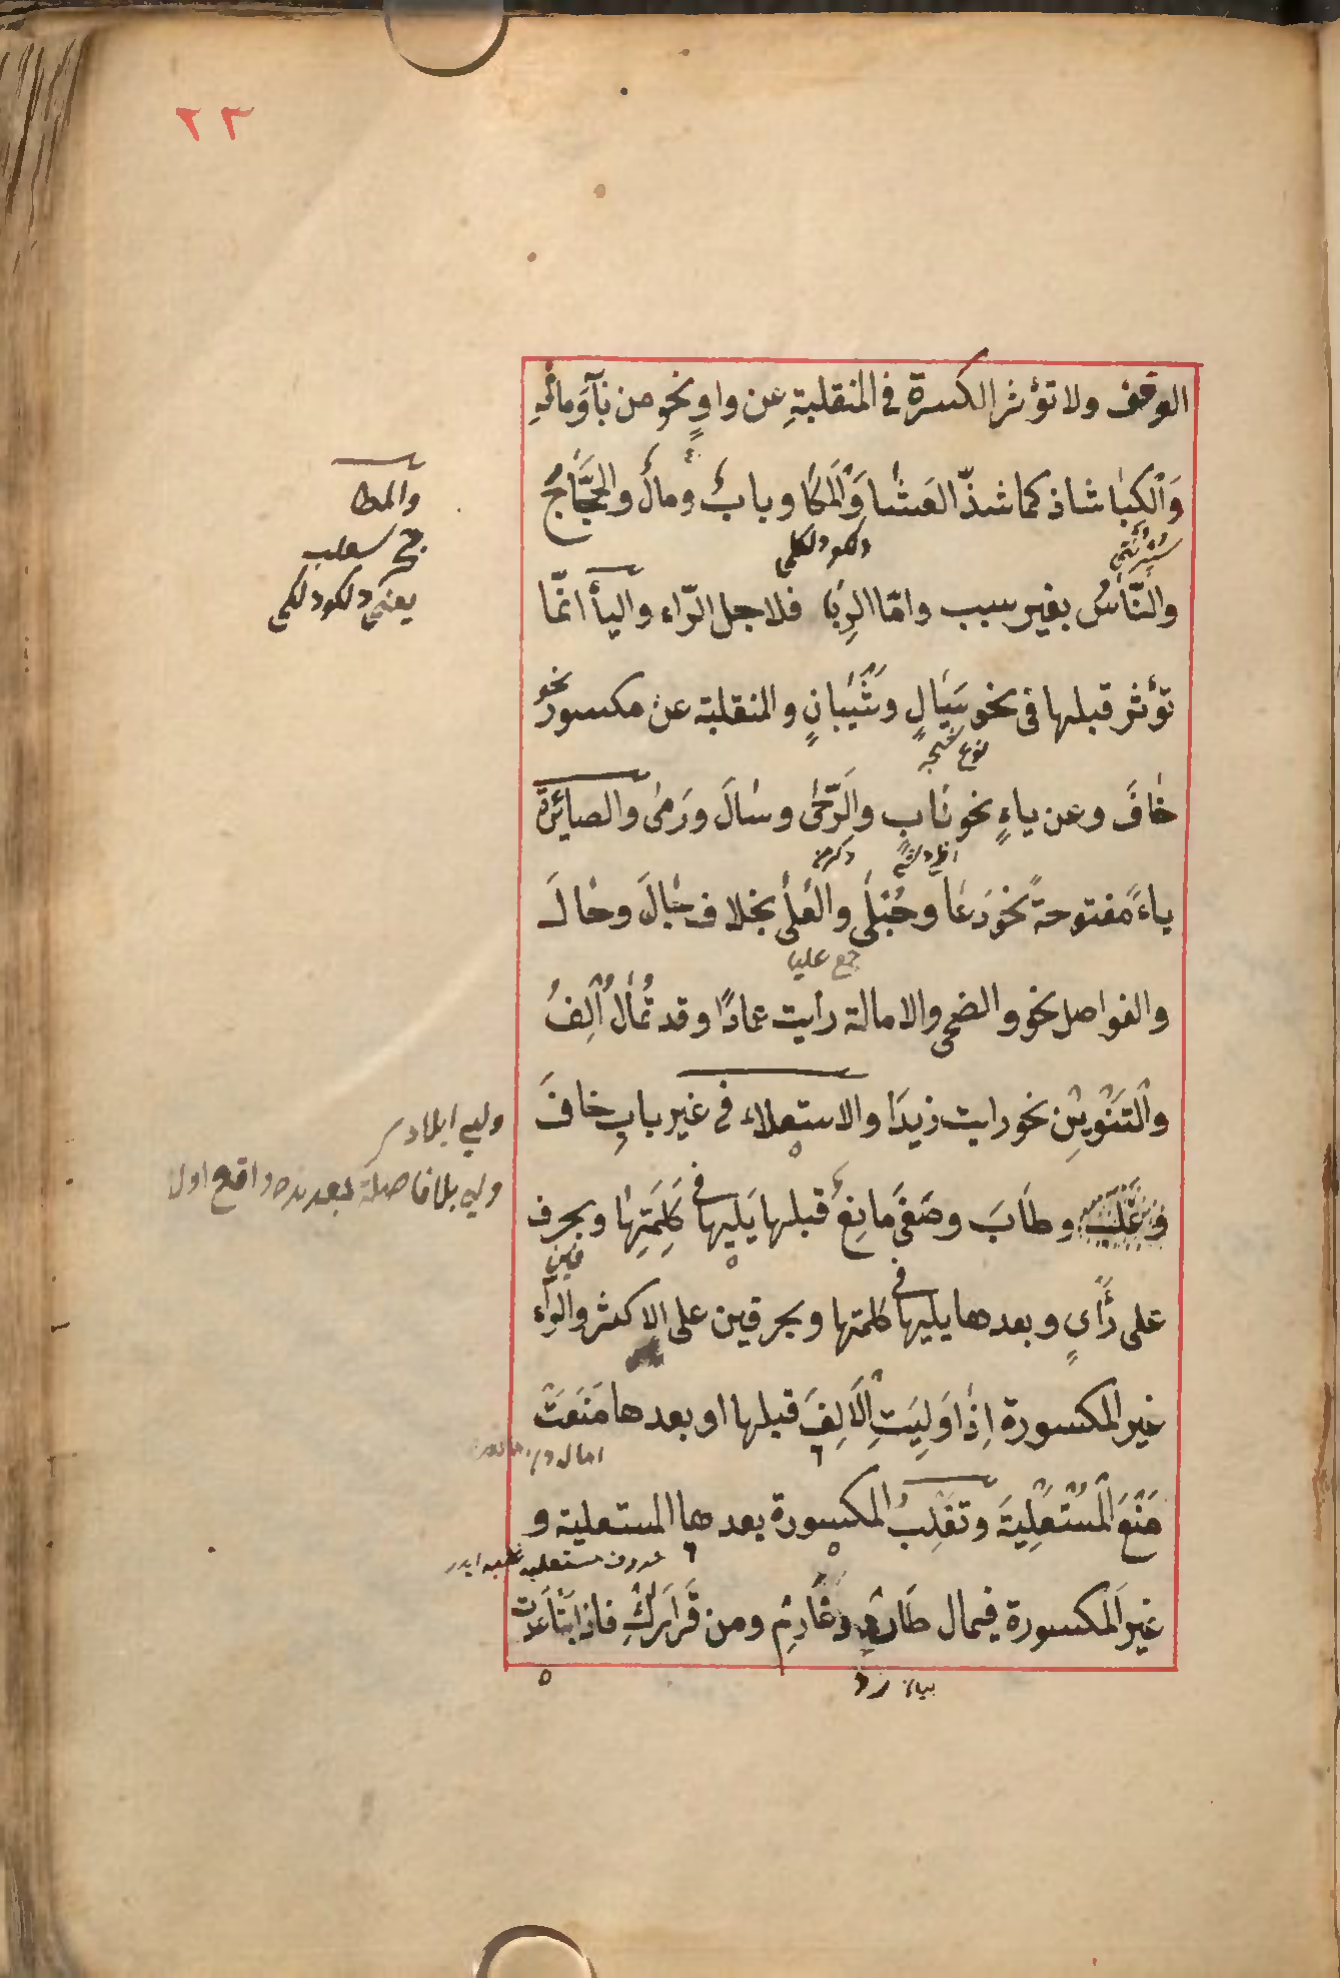 ٢٣
الوقف ولا تؤثر الكسرة في المنقلبة عن واوٍ نحو من بابه وماله
وَالْكِبَا شاذ كما شذّ العَشَا وَالْمَكَا وبابٌ ومالٌ والحَجَّاجُ
والنّاسُ بغير سبب وامّا الرِبَا فلاجل الرّاء والياء انمّا
تؤثر قبلها فى نحو سَيَالٍ وشَيْبَانٍ والمنقلبة عن مكسور نحو
خَافَ وعن ياءٍ نحو نَابٍ وَالرَّحَى وسَالَ ورَمَى والصائرة
ياءً مفتوحةً نحو دَعَا وحُبْلَى والعُلَى بخلاف جَالَ وحَالَ
والفواصل نحو والضحى والامالة رأيت عمادًا وقد تُمَالُ أَلِفُ
والتَّنْوِيْنِ نحو رايت زيدَا والاستعلاء في غير بابِ خافَ
وطَابَ وصَغَى مَانِعٌ قبلها يَلِيهَا في كَلِمَتِهَا وبحرف
على رَأْىٍ وبعدها يليها في كلمتها وبحرفين على الاكثر والرّاء
غير المكسورة اِذَا وَلِيَتِ الْأَلِفَ قبلها او بعدها مَنَعَتْ
مَنْعَ الْمُسْتَعْلِيَةِ وتَغْلِبُ المكسورة بعدها المستعلية و
غيرَ المكسورة فيمال طَارِدٌ وغَارِمٌ ومن قَرَارِكَ فاذا تَبَاعَدَت
جمع عليا
والمطا